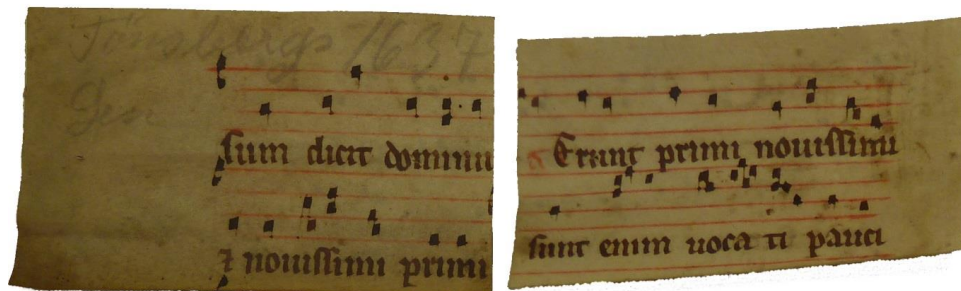 Tönsbergs 1637
sum dicit dominu
⁊ nouissimi primi
Erunt primi nouissimi
sunt enim uoca ti pauci